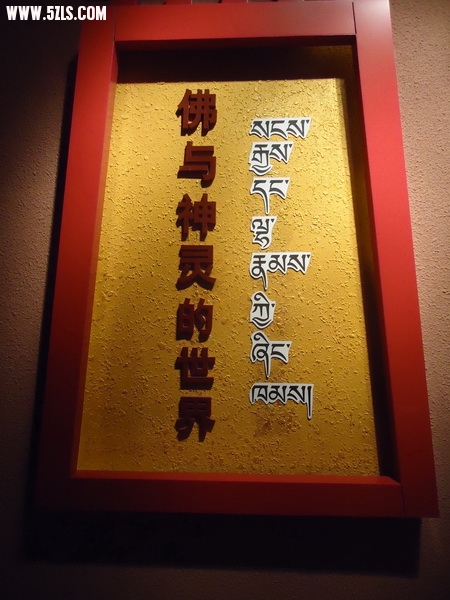 WWW.5ZLS.COM
佛与神灵的世界
སངས་
རྒྱས་
དང་
ལྷ་
རྣམས་
ཀྱི་
ཞིང་
ཁམས།